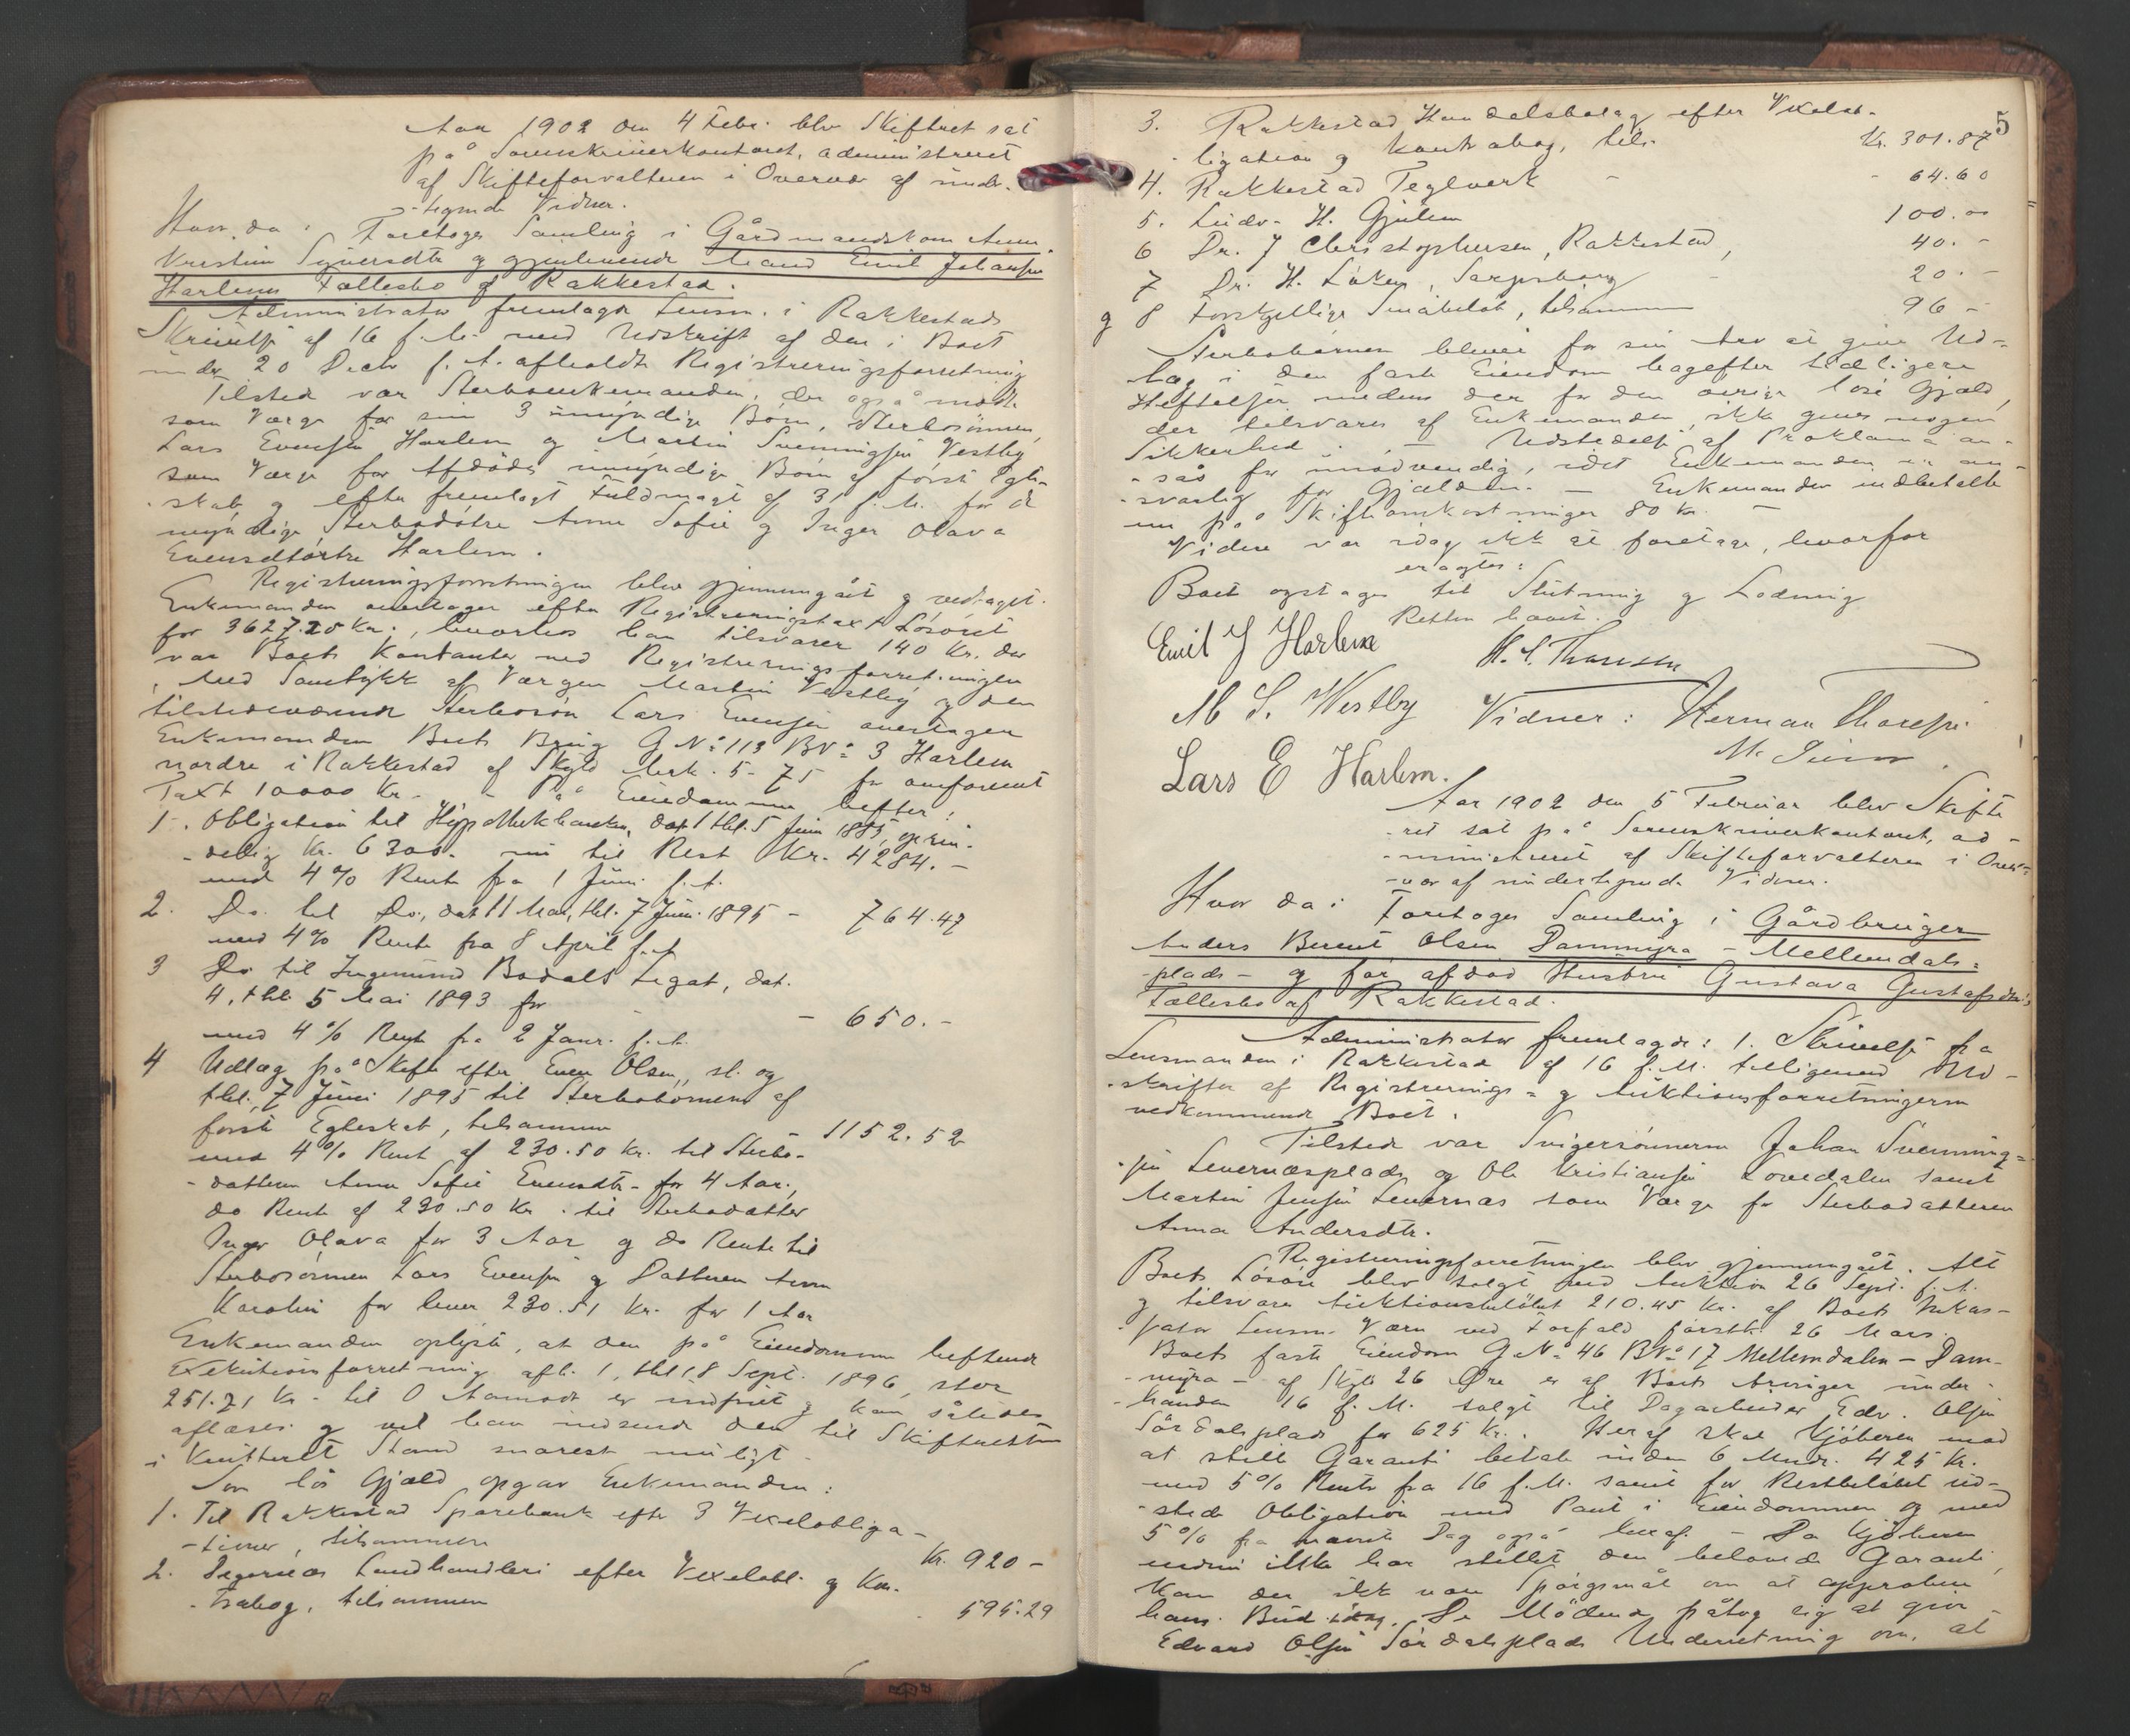 Aar 1902 den 4 Febr. blev Skifteret sat
på Sorenskriverkontoret, administreret
af Skifteforvalteren i Overvær af under-
-tegnede Vidner.
Hvor da:
Foretoges Samling i Gårdmandskone Anne
Kristine Syversdtr og gjenlevende Mand Emil Johansen
Harlems Fællesbo af Rakkestad.
Administrator fremlagde Lensm. i Rakkestads
Skrivelse af 16 f. M. med Udskrift af den i Boet
under 20 Decbr f. A. afholdte Registreringsforretning
Tilstede var Sterboenkemanden, der også mødte
som Værge for sine 3 umyndige Børn, Sterbosønnen
Lars Evensen Harlem og Martin Svenningsen Vestby
som Værge for Afdødes umyndige Børn af første Egte-
-skab og efter fremlagt Fuldmagt af 31 f. M. for de
myndige Sterbodøtre Anne Sofie og Inger Olava
Evensdtøtre Harlem.
Registreringsforretningen blev gjennemgået og vedtaget.
Enkemanden overtager efter Registreringstaxt Løsøret
for 3627.25 Kr., hvorhos han tilsvarer 140 Kr. der
var Boets Kontanter ved Registreringsforretningen
Med Samtykke af Værgen Martin Vestby og den
tilstedeværende Sterbosøn Lars Evensen overtager
Enkemanden Boets Brug G No 113 BNo 3 Harlem
nordre i Rakkestad af Skyld Mrk. 5-75 for omforenet
Taxt 10000 Kr. - På Eiendommen hefter:
1. Obligation til Hypothekbanken, dat. 1 thl. 5 Juni 1885, oprin-
-delig Kr. 6300. nu til Rest Kr. 4284.-
med 4% Rente fra 1 Juni f. A.
2. Do. til Do., dat 11 Mai, thl. 7 Juni 1895 - 764.47
med 4% Rente fra 8 April f. A
3 Do til Ingemund Bodals Legat, dat.
4, thl. 5 Mai 1893 for - 650.-
med 4% Rente fra 2 Janr. f. A.
4 Udlæg på Skifte efter Even Olsen, sl. og
thl. 7 Juni 1895 til Sterbobørnene af
første Egteskab, tilsammen 1152.52
med 4% Rente af 230.50 Kr. til Sterbo-
-datteren Anne Sofie Evensdtr. for 4 Aar,
do Rente af 230.50 Kr. til Sterbodatter
Inger Olava for 3 Aar og do Rente til
Sterbosønnen Lars Evensen og Datteren Anne
Karoline for hver 230.51 Kr. for 1 Aar
Enkemanden oplyste, at den på Eiendommen heftende
Exekutionsforretning afh. 1, thl. 8 Sept. 1896, stor
251.71 Kr. til O Aamodt er indfriet og kan således
aflæses og vil han indsende den til Skifteretten
i kvitteret Stand snarest muligt.
Som løs Gjæld opgav Enkemanden:
1. Til Rakkestad Sparebank efter 3 Vexelobliga-
-tioner, tilsammen Kr. 920 -
2. Degernes Landhandleri efter Vexelobl. og Kon-
-trabog, tilsammen 595.29
5
3. Rakkestad Handelsbolag efter Vexelob-
-ligation og Kontrabog, tils. Kr. 301.87
4. Rakkestad Teglverk - - 64.60
5. Ludv. H. Gjulem 100.00
6 Dr. J Christophersen, Rakkestad, 40.-
7 Dr. H. Løken, Sarpsborg - 20.-
og 8 Forskjellige Småbeløb, tilsammen 96 -
Sterbobørnene blive for sin Arv at give Ud-
-læg i den faste Eiendom bagefter tidligere
Heftelser medens der for den øvrige løse Gjæld,
der tilsvares af Enkemanden, ikke gives nogen
Sikkerhed. - Udstedelse af Proklama an-
-såes for unødvendig, idet Enkemanden er an-
-svarlig for Gjælden. - Enkemanden indbetalte
nu på Skifteomkostninger 80 Kr. -
Videre var idag ikke at foretage, hvorfor
eragtes:
Boet optages til Slutning og Lodning
Retten hævet.
Emil J Harlem H. S. Thoresen
M S. Westby Vidner: Herman Thoresen.
Lars E Harlem.
Aar 1902 den 5 Februar blev Skifte
-ret sat på Sorenskriverkontoret, ad-
-ministreret af Skifteforvalteren i Over-
-vær af undertegnede Vidner.
Hvor da:
Foretoges Samling i Gårdbruger
Anders Bernt Olsen Dammyra - Mellemdals-
-plads - og før afdød Hustru Gustava Gustafsdtr's
Fællesbo af Rakkestad.
Administrator fremlagde: 1. Skrivelse fra
Lensmanden i Rakkestad af 16 f. M. tilligemed Ud-
-skrifter af Registrerings- og Auktionsforretningerne
vedkommende Boet.
Tilstede var Svigersønnerne Johan Svenning-
-sen Levernesplads og Ole Kristiansen Lovedalen samt
Martin Jensen Levernæs som Værge for Sterbodatteren
Anna Andersdtr.
Registreringsforretningen blev gjennemgået. Alt
Boets Løsøre blev solgt ved Auktion 26 Sept. f. A.
og tilsvares Auktionsbeløbet 210.45 Kr. af Boets Inkas-
-sator Lensm. Værn ved Forfald førstk. 26 Mars.
Boets faste Eiendom G No 46 BNo 17 Mellemdalen - Dam-
-myra - af Skyld 26 Øre er af Boets Arvinger under-
-hånden 16 f. M. solgt til Dagarbeider Edv. Olsen
Sørdalsplads for 625 Kr. Heraf skal Kjøberen mod
at stille Garanti betale inden 6 Mndr. 425 Kr.
med 5% Rente fra 16 f. M. samt for Restbeløbet ud-
-stede Obligation med Pant i Eiendommen og med
5% fra nævnte Dag også heraf. - Da Kjøberen
endnu ikke har stillet den belovede Garanti,
kan der ikke være Spørgsmål om at approbere
hans Bud idag. De Mødende påtog sig at give
Edvard Olsen Sørdalsplads Underretning om, at